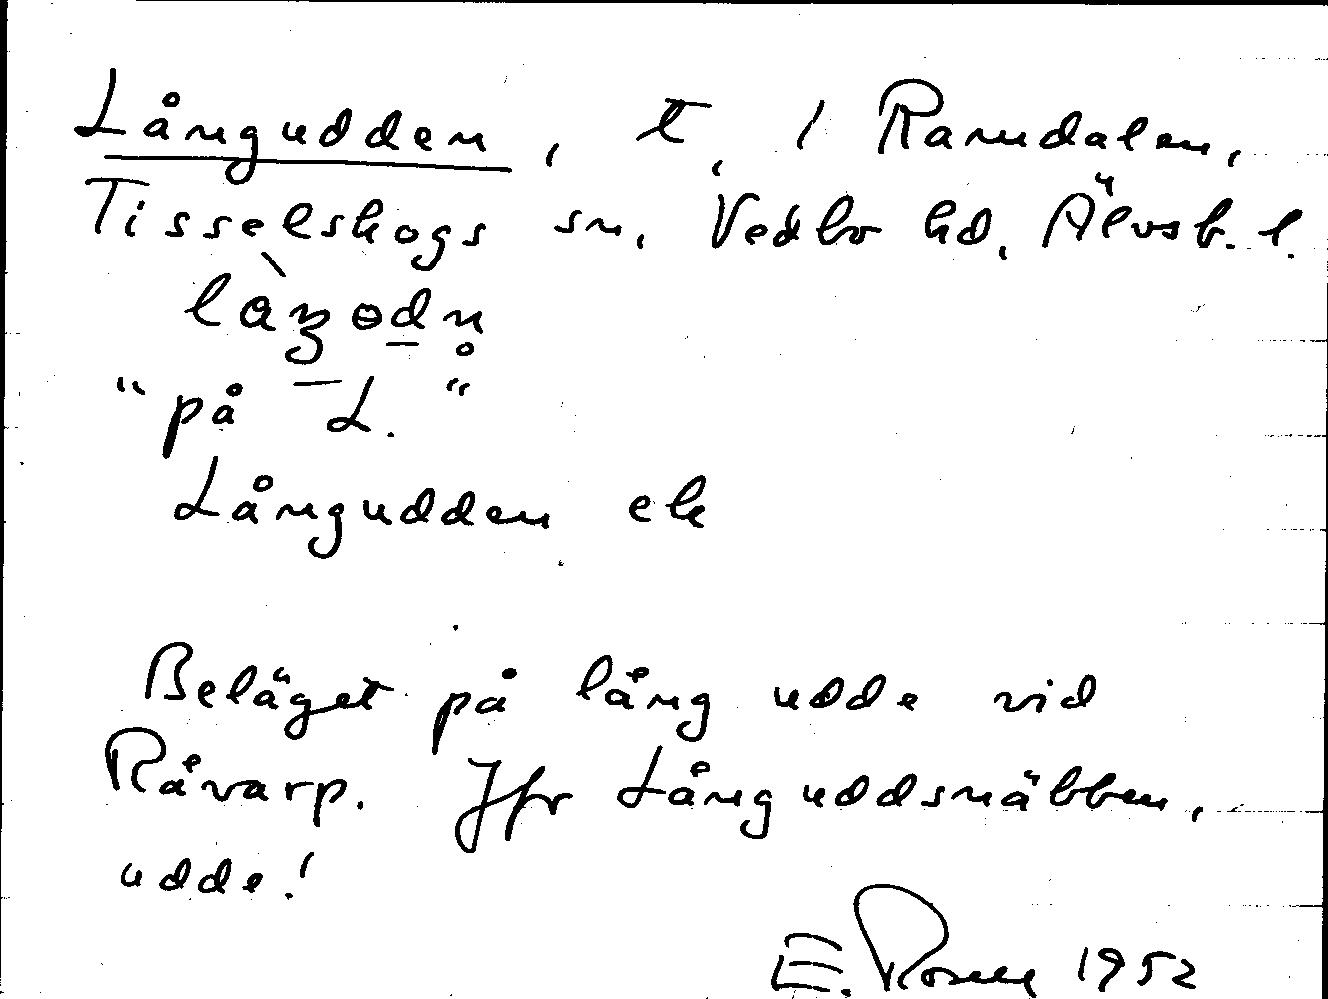 Långudden, t, / Ramdalen,
Tisselskogs sn, Vedbo hd, Älvsb. l.
"på L."
Långudden ek
Beläget på lång udde vid
Råvarp. Jfr Långuddsnäbben,
udde!
E. 1952